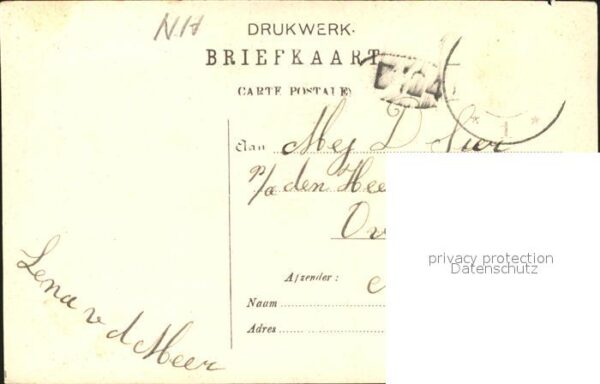 NH
DRUKWERK.
BRIEFKAART
(CARTE POSTALE)
Aan Mej D
p/a den Hee
Ov
privacy protection
Datenschutz
Afzender:
Naam
Adres
Lena v d Meer
* 1 *